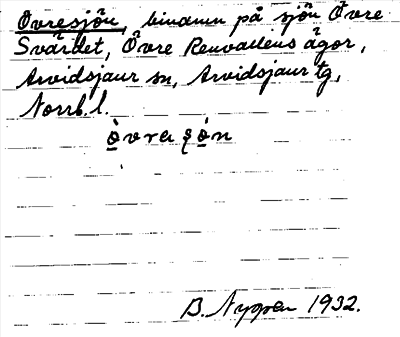 Övresjön, binamn på sjön Övre
Svärdet, Övre Renvallens ägor,
Arvidsjaur sn, Arvidsjaur tg,
Norrb. l.
ò̱vra ʂó̱n
B. Nygren 1932.